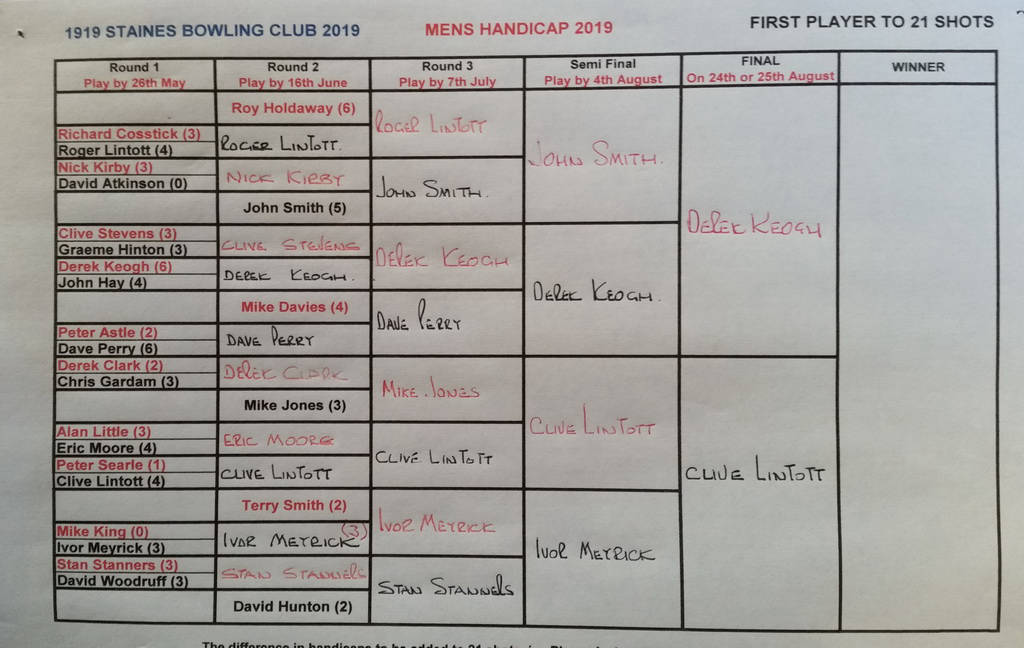 1919 STAINES BOWLING CLUB 2019
MENS HANDICAP 2019
FIRST PLAYER TO 21 SHOTS
Round 1
Play by 26th May
Round 2
Play by 16th June
Round 3
Play by 7th July
Semi Final
Play by 4th August
FINAL
On 24th or 25th August
WINNER
Richard Cosstick (3)
Roger Lintott (4)
Nick Kirby (3)
David Atkinson (0)
Clive Stevens (3)
Graeme Hinton (3)
Derek Keogh (6)
John Hay (4)
Peter Astle (2)
Dave Perry (6)
Derek Clark (2)
Chris Gardam (3)
Alan Little (3)
Eric Moore (4)
Peter Searle (1)
Clive Lintott (4)
Mike King (0)
Ivor Meyrick (3)
Stan Stanners (3)
David Woodruff (3)
Roy Holdaway (6)
ROGER LINTOTT.
NICK KIRBY
John Smith (5)
CLIVE STEVENS
DEREK KEOGH.
Mike Davies (4)
DAVE PERRY
DEREK CLARK
Mike Jones (3)
ERIC MOORE
CLIVE LINTOTT
Terry Smith (2)
IVOR MEYRICK (3)
STAN STANNERS
David Hunton (2)
ROGER LINTOTT
JOHN SMITH.
DEREK KEOGH
DAVE PERRY
MIKE JONES
CLIVE LINTOTT
IVOR MEYRICK
STAN STANNERS
JOHN SMITH.
DEREK KEOGH.
CLIVE LINTOTT
IVOR MEYRICK
DEREK KEOGH
CLIVE LINTOTT
The difference in handicaps to be added to 21